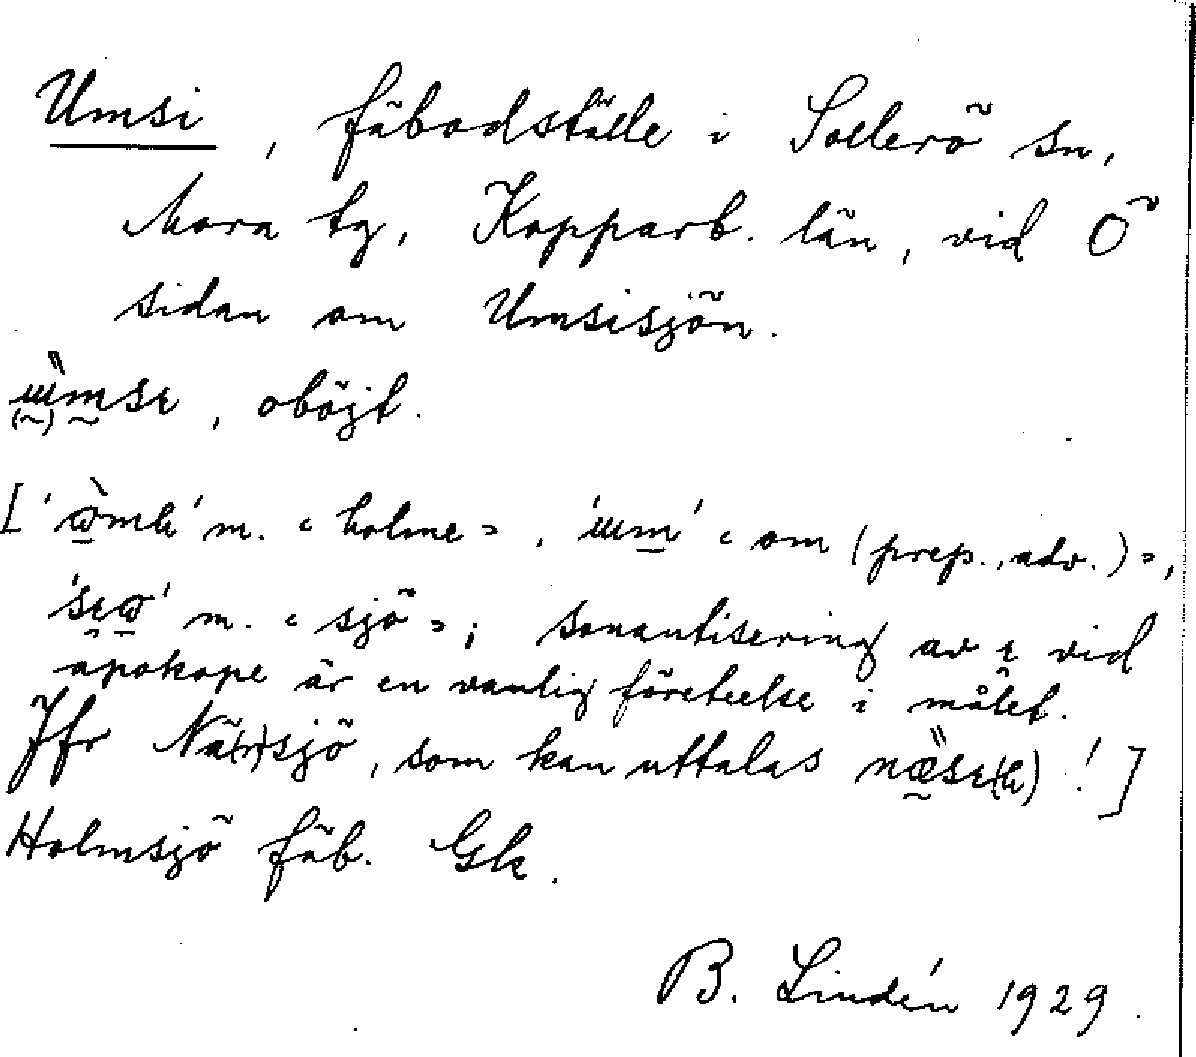 Umsi, fäbodställe i Sollerö sn,
Mora tg, Kopparb. län, vid Ö
sidan om Umsisjön.
, oböjt.
[ m. "holme", "om (prep., adv.)",
m. "sjö"; sonantisering av vid
apokope är en vanlig företeelse i målet.
Jfr Nä(r)sjö, som kan uttalas !]
Holmsjö fäb. Gk.
B. Lindén 1929.